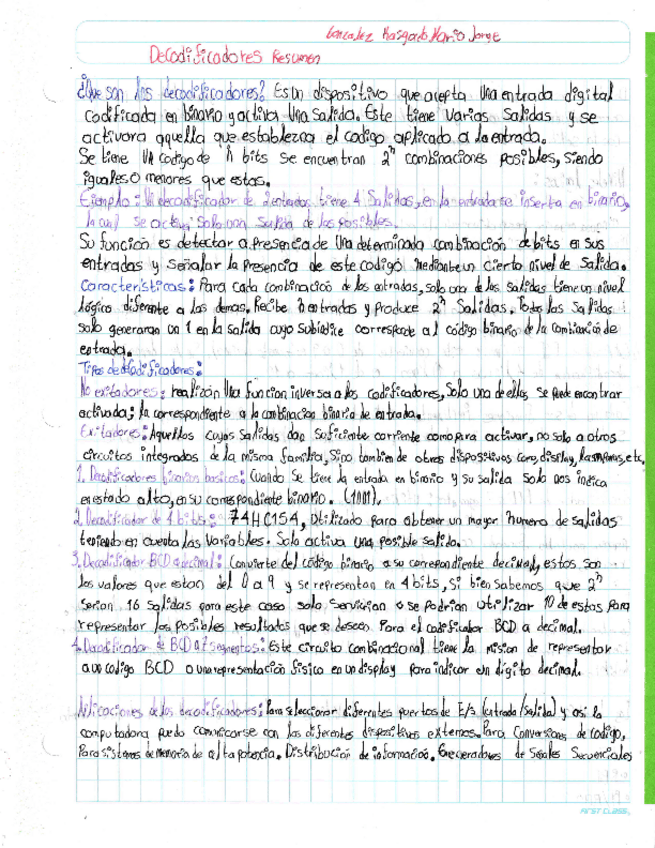 Gonzalez Rasgado Mario Jorge
Decodificadores Resumen
¿Que son los decodificadores? Es un dispositivo que acepta una entrada digital
codificada en binario y activa una salida. Este tiene varias salidas y se
activara aquella que establezca el codigo aplicado a la entrada.
Se tiene un codigo de n bits se encuentran 2ⁿ combinaciones posibles, siendo
iguales o menores que estas.
Ejemplo: Un decodificador de 2 entradas tiene 4 salidas, en la entrada se inserta en binario,
la cual se activa solo una salida de las posibles.
Su función es detectar a presencia de una determinada combinación de bits en sus
entradas y señalar la presencia de este codigo mediante un cierto nivel de salida.
Características: Para cada combinación de las entradas, solo una de las salidas tiene un nivel
lógico diferente a las demas. Recibe n entradas y produce 2ⁿ salidas. Todas las salidas
solo generaran un 1 en la salida cuyo subindice corresponde al código binario de la combinación de
entrada.
Tipos de decodificadores:
No exitadores: realizan una funcion inversa a los codificadores, solo una de ellas se puede encontrar
activada; la correspondiente a la combinacion binaria de entrada.
Exitadores: Aquellos cuyas salidas dan suficiente corriente como para activar, no solo a otros
circuitos integrados de la misma familia, sino tambien de otros dispositivos como, display, lamparas, etc.
1. Decodificadores binarios basicos: Cuando se tiene la entrada en binario y su salida solo nos indica
en estado alto, en su correspondiente binario. (1001).
2. Decodificador de 4 bits: 74HC154, utilizado para obtener un mayor numero de salidas
teniendo en cuenta las variables. Solo activa una posible salida.
3. Decodificador BCD a decimal: Convierte del código binario a su correspondiente decimal, estos son
los valores que estan del 0 a 9 y se representan en 4 bits, si bien sabemos que 2ⁿ
serian 16 salidas para este caso solo servirian o se podrian utilizar 10 de estas para
representar los posibles resultados que se desean. Para el codificador BCD a decimal.
4. Decodificador de BCD a 7 segmentos: Este circuito combinacional tiene la mision de representar
a un codigo BCD o una representación fisica en un display para indicar un digito decimal.
Aplicaciones de los decodificadores: Para seleccionar diferentes puertos de E/S (entrada/salida) y asi la
computadora puede comunicarse con los diferentes dispositivos externos. Para conversiones de codigo,
Para sistemas de memoria de alta potencia. Distribución de información. Generadores de señales secuenciales
FIRST CLASS